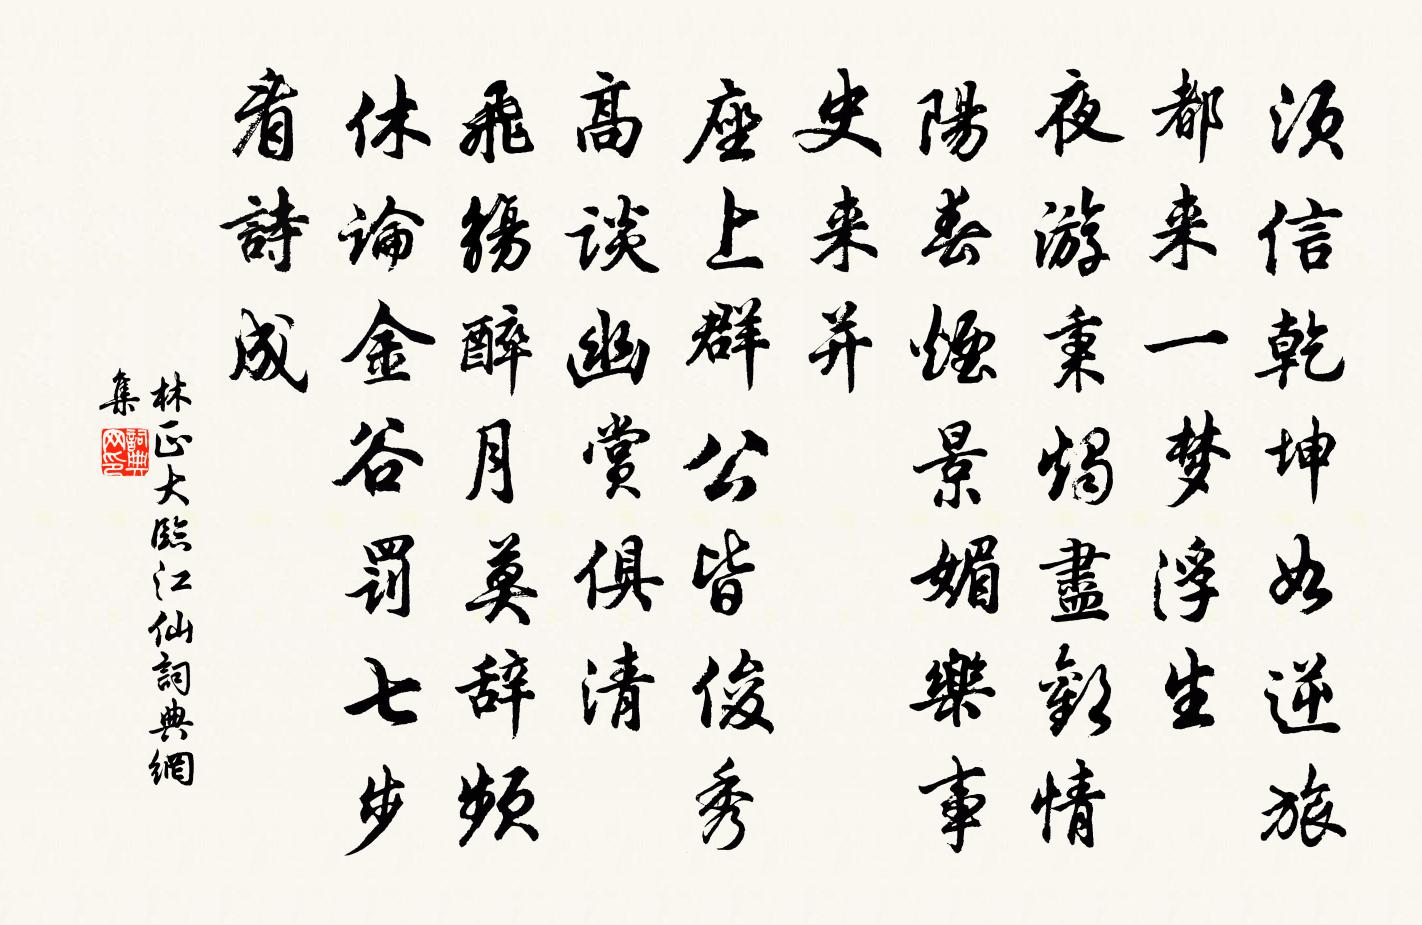 须信乾坤如逆旅
都来一梦浮生
夜游秉燭盡歡情
陽春煙景媚樂事
史来并
座上群公皆俊秀
高谈幽赏俱清
飛觴醉月莫辞频
休论金谷罰七步
看詩成
林正大臨江仙詞典網
集
詞典网印